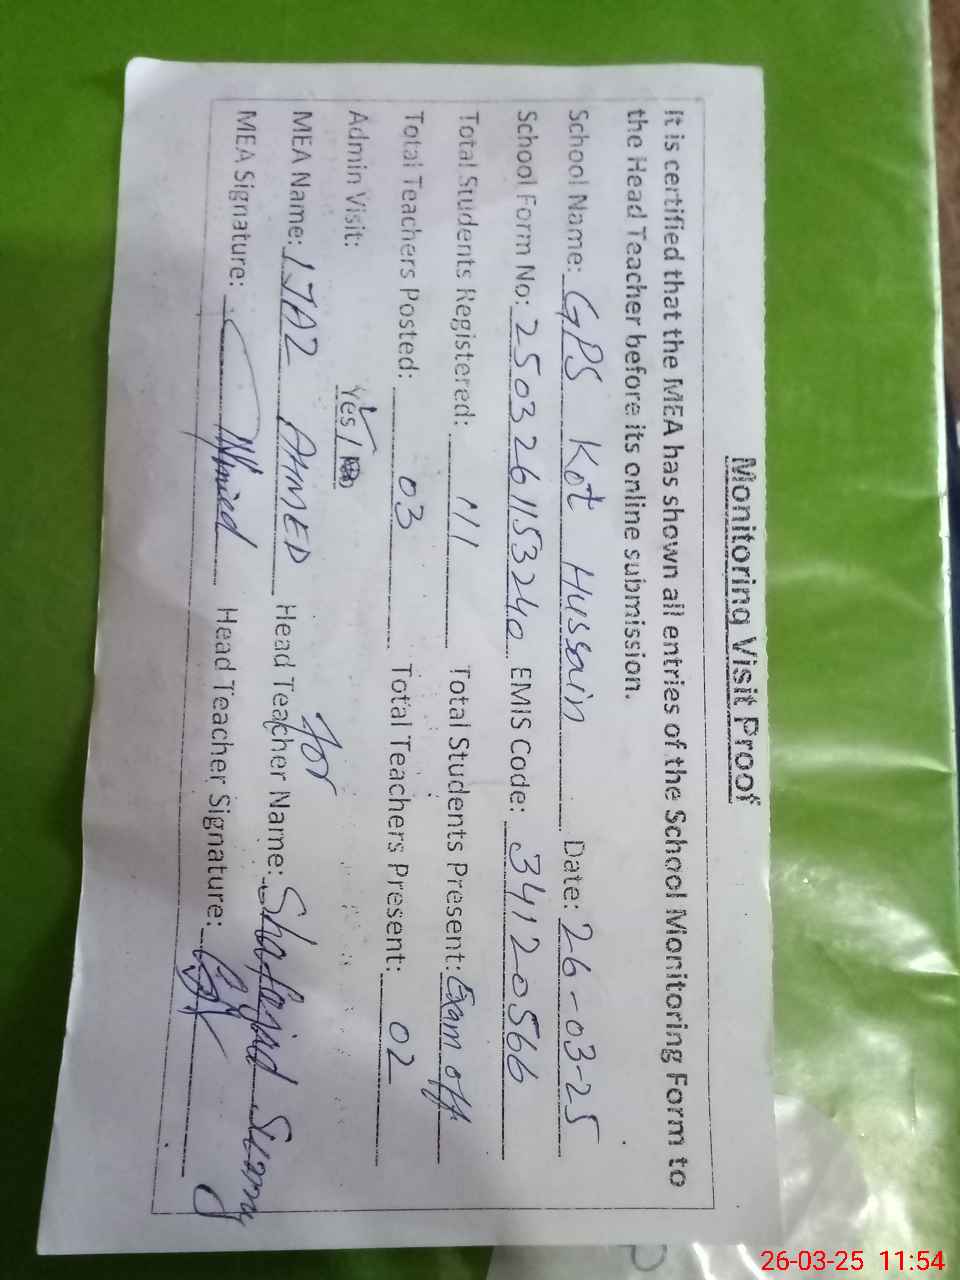 Monitoring Visit Proof
It is certified that the MEA has shown all entries of the School Monitoring Form to
the Head Teacher before its online submission.
School Name: GPS Kot Hussain Date: 26-03-25
School Form No: 2503261153240 EMIS Code: 34120566
Total Students Registered: 111 Total Students Present: Exam off
Total Teachers Posted: 03 Total Teachers Present: 02
Admin Visit: Yes /
MEA Name: IJAZ AHMED Head Teacher Name: for
MEA Signature: Head Teacher Signature:
26-03-25 11:54